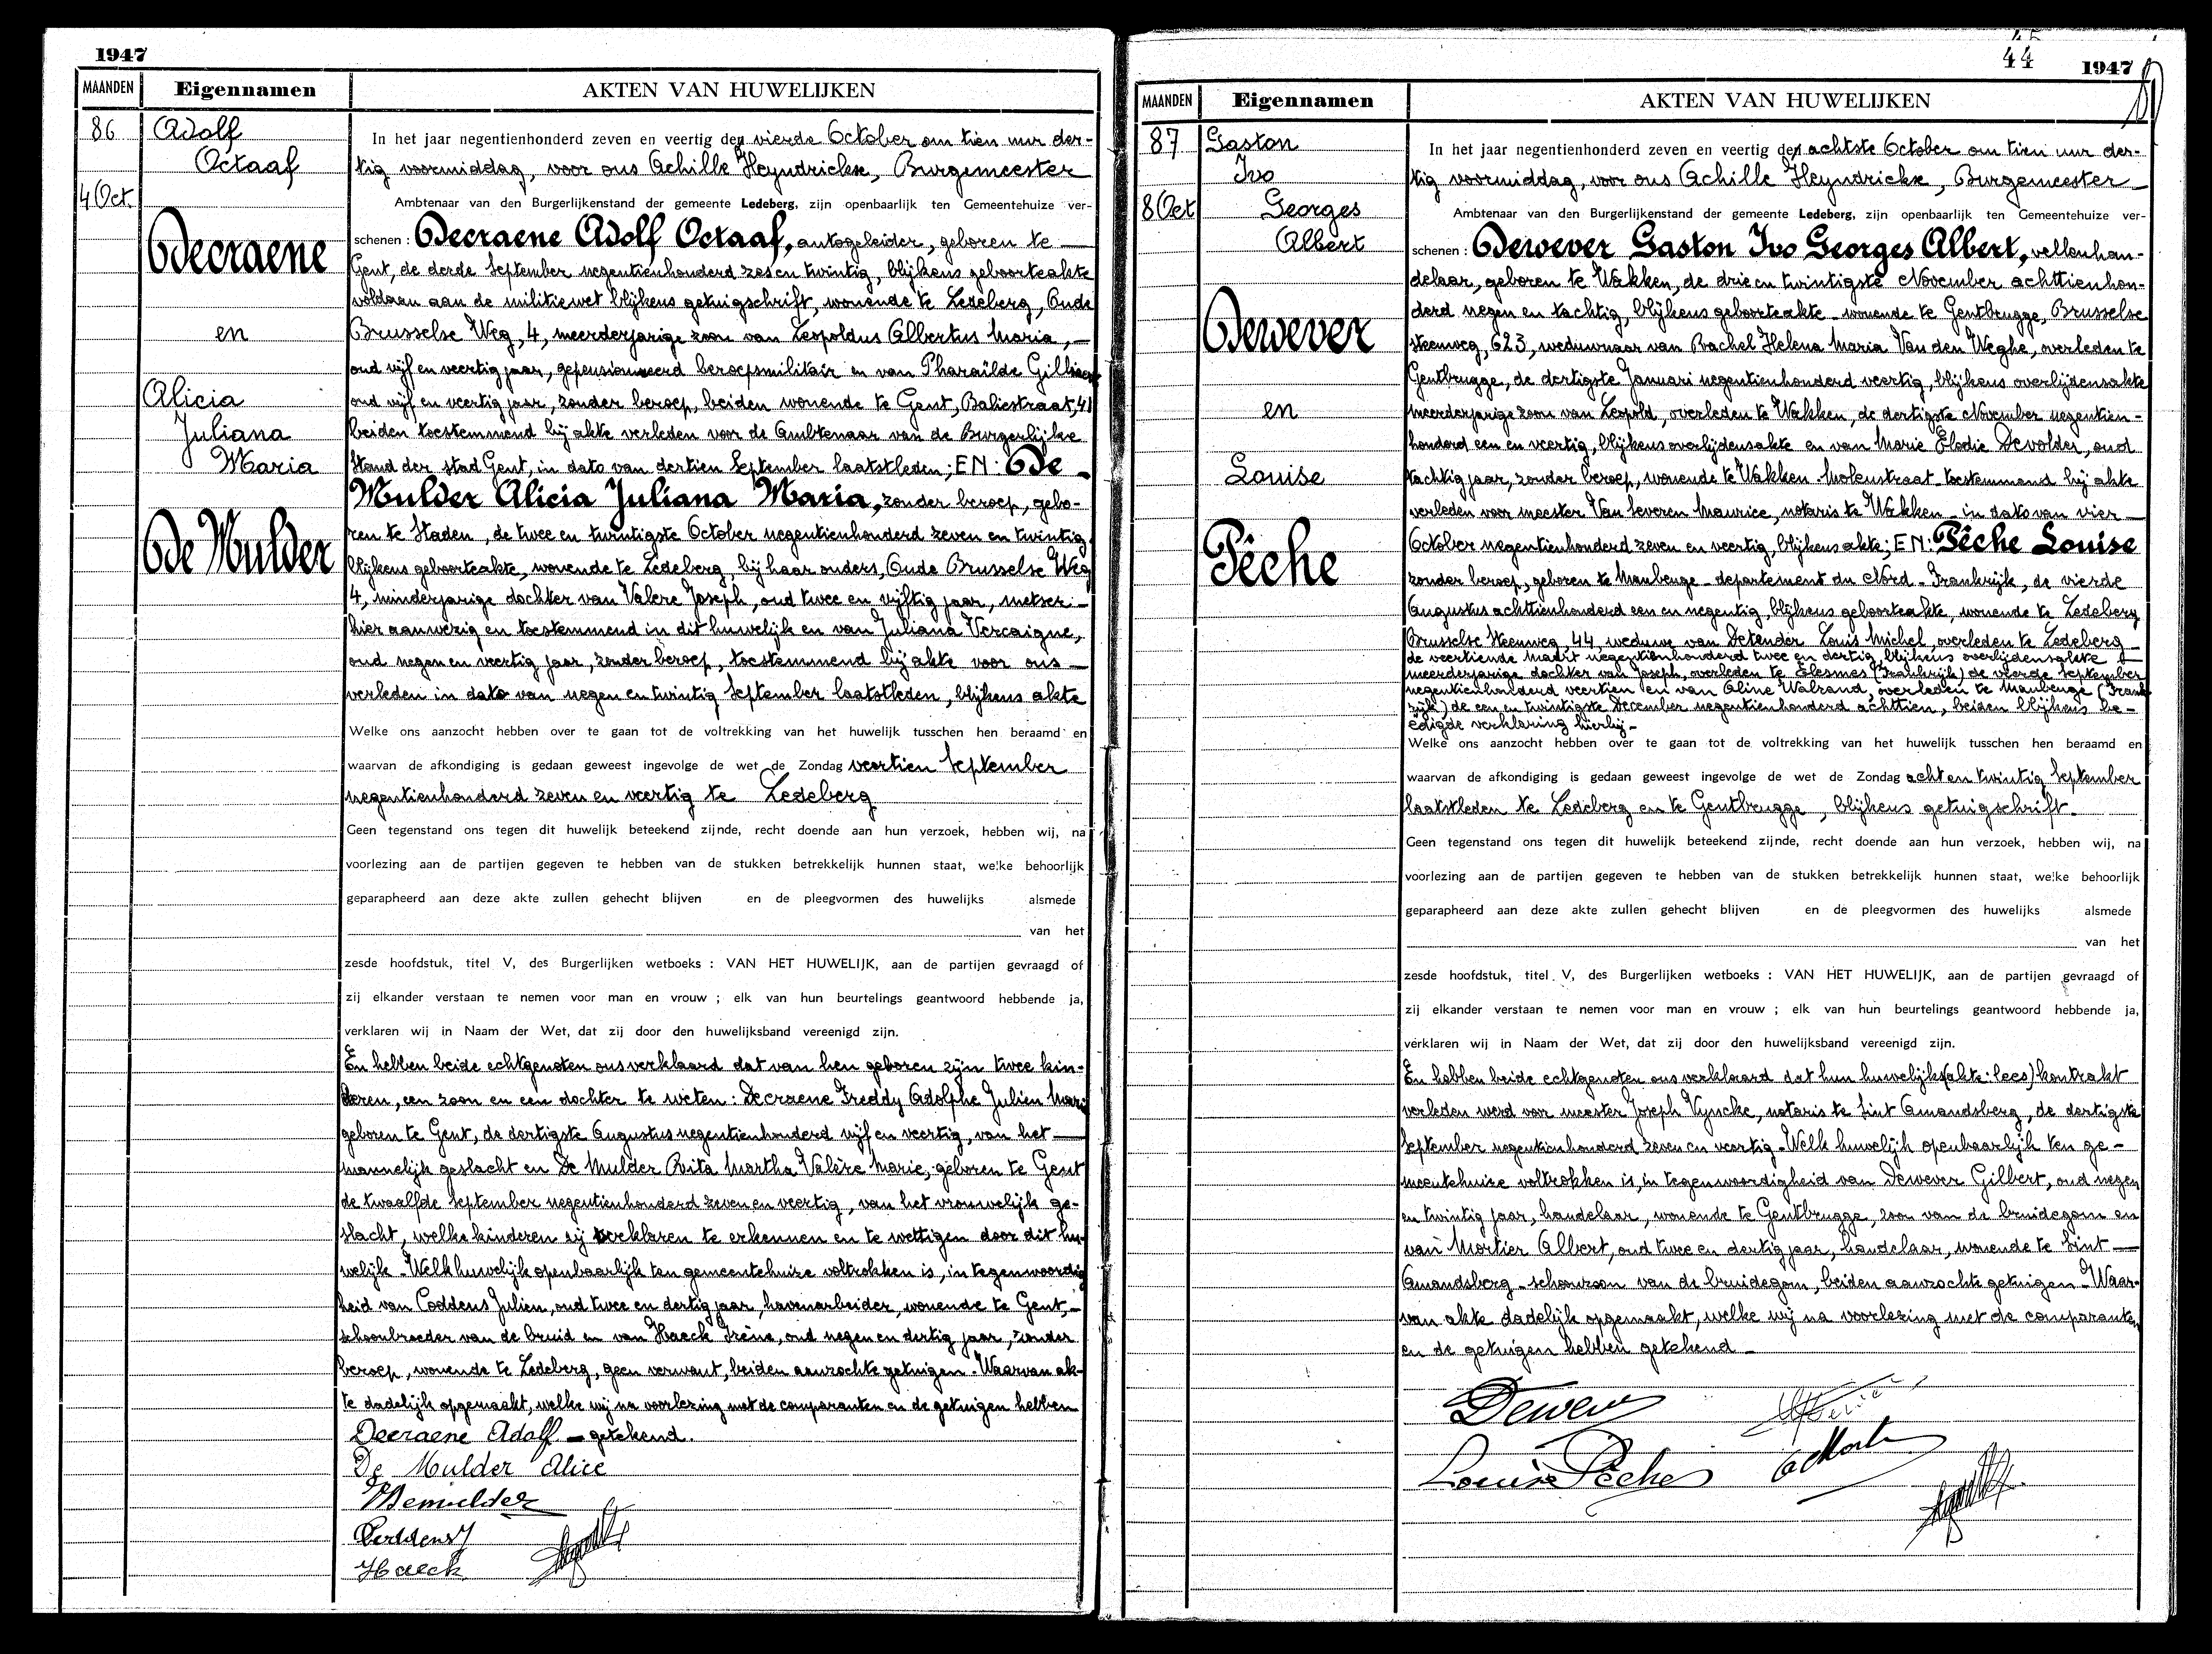 1947
MAANDEN Eigennamen AKTEN VAN HUWELIJKEN
86
4 Oct.
Adolf
Octaaf
Decraene
en
Alicia
Juliana
Maria
De Mulder
In het jaar negentienhonderd zeven en veertig den vierde October om tien uur der-
tig voormiddag, voor ons Achille Heyndrickx, Burgemeester
Ambtenaar van den Burgerlijkenstand der gemeente Ledeberg, zijn openbaarlijk ten Gemeentehuize ver-
schenen : Decraene Adolf Octaaf, autogeleider, geboren te —
Gent, de derde September negentienhonderd zes en twintig, blijkens geboorteakte
voldaan aan de militiewet blijkens getuigschrift, wonende te Ledeberg, Oude
Brusselse Weg, 4, meerderjarige zoon van Leopoldus Albertus Maria, —
oud vijf en veertig jaar, gepensionneerd beroepsmilitair en van Pharaïlde
oud vijf en veertig jaar, zonder beroep, beiden wonende te Gent, Baliestraat, 41
beiden toestemmend bij akte verleden voor de Ambtenaar van de Burgerlijke
Stand der stad Gent, in dato van dertien September laatstleden; EN: De
Mulder Alicia Juliana Maria, zonder beroep, gebo-
ren te Staden, de twee en twintigste October negentienhonderd zeven en twintig
blijkens geboorteakte, wonende te Ledeberg, bij haar ouders, Oude Brusselse Weg
4, minderjarige dochter van Valere Joseph, oud twee en vijftig jaar, metser —
hier aanwezig en toestemmend in dit huwelijk en van Juliana Vercaigne,
oud negen en veertig jaar, zonder beroep, toestemmend bij akte voor ons —
verleden in dato van negen en twintig September laatstleden, blijkens akte
Welke ons aanzocht hebben over te gaan tot de voltrekking van het huwelijk tusschen hen beraamd en
waarvan de afkondiging is gedaan geweest ingevolge de wet de Zondag veertien September
negentienhonderd zeven en veertig te Ledeberg
Geen tegenstand ons tegen dit huwelijk beteekend zijnde, recht doende aan hun verzoek, hebben wij, na
voorlezing aan de partijen gegeven te hebben van de stukken betrekkelijk hunnen staat, welke behoorlijk
geparapheerd aan deze akte zullen gehecht blijven en de pleegvormen des huwelijks alsmede
van het
zesde hoofdstuk, titel V, des Burgerlijken wetboeks : VAN HET HUWELIJK, aan de partijen gevraagd of
zij elkander verstaan te nemen voor man en vrouw ; elk van hun beurtelings geantwoord hebbende ja,
verklaren wij in Naam der Wet, dat zij door den huwelijksband vereenigd zijn.
En hebben beide echtgenoten ons verklaard dat van hen geboren zijn twee kin-
deren, een zoon en een dochter te weten: Decraene Freddy Adolphe Julien Marie
geboren te Gent, de dertigste Augustus negentienhonderd vijf en veertig, van het —
mannelijk geslacht en De Mulder Rita Martha Valère Marie, geboren te Gent
de twaalfde September negentienhonderd zeven en veertig, van het vrouwelijk ge-
slacht, welke kinderen zij verklaren te erkennen en te wettigen door dit hu-
welijk. Welk huwelijk openbaarlijk ten gemeentehuize voltrokken is, in tegenwoordig
heid van Coddens Julien, oud twee en dertig jaar, havenarbeider, wonende te Gent, —
schoonbroeder van de bruid en van Haeck Irène, oud negen en dertig jaar, zonder
beroep, wonende te Ledeberg, geen verwant, beiden aanzochte getuigen. Waarvan ak-
te dadelijk opgemaakt, welke wij na voorlezing met de comparanten en de getuigen hebben
Decraene Adolf — getekend.
De Mulder Alice
Demulder
Coddens J
Haeck
44 1947
MAANDEN Eigennamen AKTEN VAN HUWELIJKEN
87
8 Oct
Gaston
Ivo
Georges
Albert
Dewever
en
Louise
Pêche
In het jaar negentienhonderd zeven en veertig den achtste October om tien uur der-
tig voormiddag, voor ons Achille Heyndrickx, Burgemeester
Ambtenaar van den Burgerlijkenstand der gemeente Ledeberg, zijn openbaarlijk ten Gemeentehuize ver-
schenen : Dewever Gaston Ivo Georges Albert, vellenhan-
delaar, geboren te Wakken, de drie en twintigste November achttienhon-
derd negen en tachtig, blijkens geboorteakte - wonende te Gentbrugge, Brusselse
steenweg, 623, weduwnaar van Rachel Helena Maria Van den Weghe, overleden te
Gentbrugge, de dertigste Januari negentienhonderd veertig, blijkens overlijdensakte
meerderjarige zoon van Leopold, overleden te Wakken, de dertigste November negentien-
honderd een en veertig, blijkens overlijdensakte en van Marie Elodie Devolder, oud
tachtig jaar, zonder beroep, wonende te Wakken Molenstraat - toestemmend bij akte
verleden voor meester Van Severen Maurice, notaris te Wakken - in dato van vier —
October negentienhonderd zeven en veertig, blijkens akte; EN: Pêche Louise
zonder beroep, geboren te Maubeuge - departement du Nord - Frankrijk, de vierde
Augustus achttienhonderd een en negentig, blijkens geboorteakte, wonende te Ledeberg
Brusselse Steenweg, 44, weduwe van Detender Louis Michel, overleden te Ledeberg
de veertiende Maart negentienhonderd twee en dertig, blijkens overlijdensakte
meerderjarige dochter van Joseph, overleden te Elesmes (Frankrijk) de vierde September
negentienhonderd veertien en van Aline Walrand, overleden te Maubeuge (Frank
rijk) de een en twintigste December negentienhonderd achttien, beiden blijkens be-
edigde verklaring hierbij -
Welke ons aanzocht hebben over te gaan tot de voltrekking van het huwelijk tusschen hen beraamd en
waarvan de afkondiging is gedaan geweest ingevolge de wet de Zondag acht en twintig September
laatstleden te Ledeberg en te Gentbrugge, blijkens getuigschrift.
Geen tegenstand ons tegen dit huwelijk beteekend zijnde, recht doende aan hun verzoek, hebben wij, na
voorlezing aan de partijen gegeven te hebben van de stukken betrekkelijk hunnen staat, welke behoorlijk
geparapheerd aan deze akte zullen gehecht blijven en de pleegvormen des huwelijks alsmede
van het
zesde hoofdstuk, titel V, des Burgerlijken wetboeks : VAN HET HUWELIJK, aan de partijen gevraagd of
zij elkander verstaan te nemen voor man en vrouw ; elk van hun beurtelings geantwoord hebbende ja,
verklaren wij in Naam der Wet, dat zij door den huwelijksband vereenigd zijn.
En hebben beide echtgenoten ons verklaard dat hun huwelijks(akte: lees) kontrakt
verleden werd voor meester Joseph Vyncke, notaris te Sint Amandsberg, de dertigste
September negentienhonderd zeven en veertig. Welk huwelijk openbaarlijk ten ge-
meentehuize voltrokken is, in tegenwoordigheid van Dewever Gilbert, oud negen
en twintig jaar, handelaar, wonende te Gentbrugge, zoon van de bruidegom en
van Mortier Albert, oud twee en dertig jaar, handelaar, wonende te Sint —
Amandsberg - schoonzoon van de bruidegom, beiden aanzochte getuigen. Waar-
van akte dadelijk opgemaakt, welke wij na voorlezing met de comparanten
en de getuigen hebben getekend -
Dewever
Louise Pêche